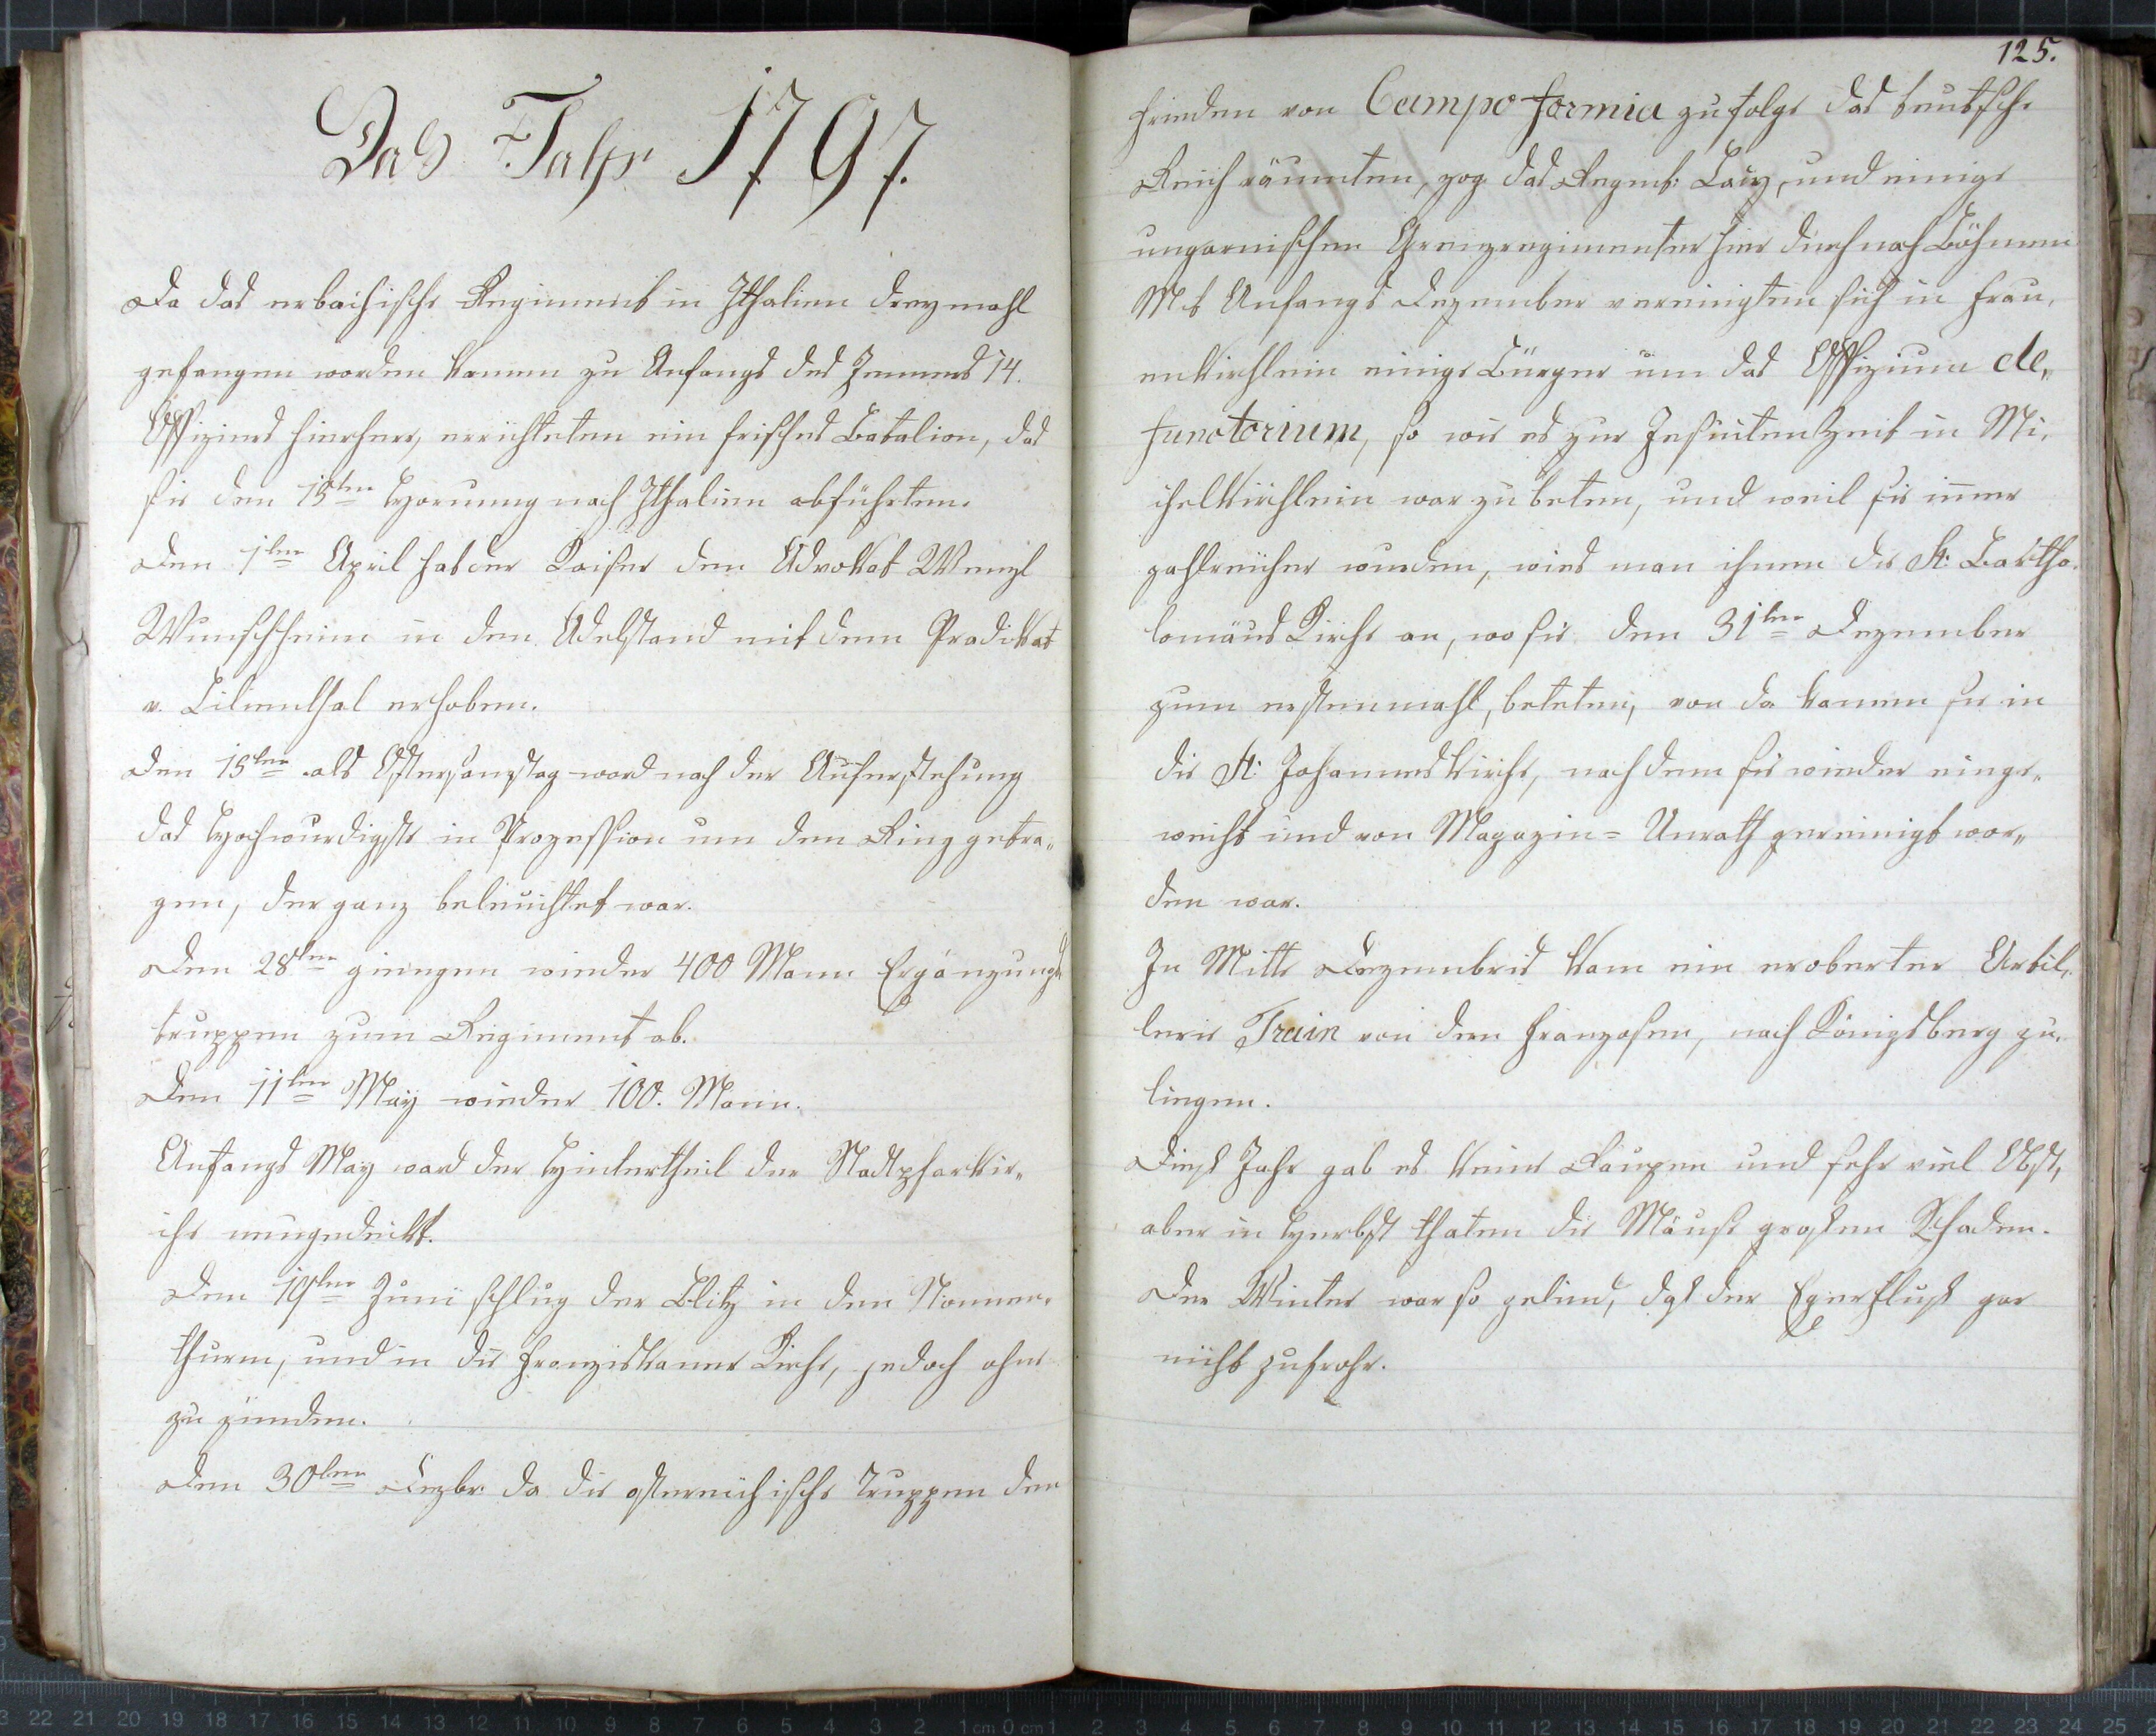 Das Jahr 1797.
Da das erbachische Regiment in Ithalien dreymahl
gefangen worden kamen zu Anfangs des Jenners 14.
Offiziers hierher, errichteten ein frisches Batalion, das
sie den 15ten Hornung nach Ithalien abführten.
Den 1ten April hat der Kaiser den Advokat Wenzl
Wunschheim in den Adelstand mit dem Prädikat
v. Lilienthal erhoben.
Den 15ten als Ostersamstag ward nach der Auferstehung
das Hochwurdigste in Prozession um den Ring getra„
gen, der ganz beleuchtet war.
Den 28ten giengen wieder 400 Mann Ergänzungs
truppen zum Regiment ab.
Den 11ten May wieder 100. Mann.
Anfangs May ward der Hintertheil der Stadtpfarkir„
che neugedeckt.
Den 19ten Juni schlug der Blitz in den Nonnen„
thurm, und in die Franziskaner Kirche, jedoch ohne
zu zünden.
Den 30ten Dezbr. da die östereichische Truppen den
125.
Frieden von Campo formia zufolge das teutsche
Reich räumten, zog das Regmt: Lacy, und einige
ungarnischen Grenzregimenter hier durch nach Böhmen
Mit Anfangs Dezember vereinigten sich in Frau„
enkirchlein einige Bürger um das Offizium de„
functorium, so wie es zur Jesuiten Zeit in Mi„
chelkirchlein war zu beten, und weil sie immer
zahlreicher wurden, wies man ihnen die St: Bartho„
lomäus Kirche an, wo sie den 31ten Dezember
zum erstenmahl, beteten, von da kamen sie in
die St: Johanneskirche, nach dem sie wieder einge„
weiht und von Magazin= Unrath gereinigt wor„
den war.
In Mitte Dezembris kam ein eroberter Artil„
lerie Train von den Franzosen, nach Königsberg zu
liegen.
Diese Jahr gab es keine Raupen und sehr viel Obst,
aber in Herbst thaten die Mäuse großen Schaden.
Der Winter war so gelind, daß der Egerfluß gar
nicht zufrohr.